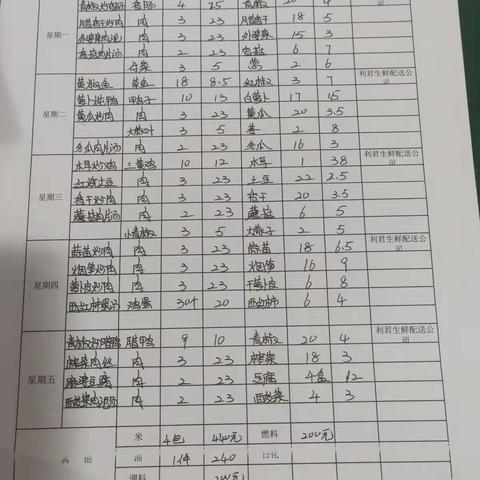 星期一 青椒炒香肠 香肠 4 25 青椒 20 4
月腊香干炒肉 肉 3 23 香干 18 5
外婆菜肉沫 肉 3 23 外婆菜 15 3
香菇肉片汤 肉 2 23 香菇 6 7
3 5 葱 2 6
星期二 黄焖鱼 草鱼 18 8.5 红椒 3 7 利君生鲜配送公司
萝卜炖鸭 鸭子 10 13 白萝卜 17 1.5
黄瓜炒肉 肉 3 23 黄瓜 20 3.5
3 5 姜 2 8
冬瓜肉片汤 肉 2 23 冬瓜 16 3
星期三 木耳炒鸡 三黄鸡 10 12 木耳 1 38 利君生鲜配送公司
红烧土豆 肉 3 23 土豆 22 2.5
香干炒肉 肉 3 23 香干 20 3.5
蘑菇肉片汤 肉 2 23 蘑菇 6 5
小青椒 3 5 大蒜子 2 5
星期四 蒜苗炒肉 肉 3 23 蒜苗 18 6.5 利君生鲜配送公司
炒肉 肉 3 23 16 9
萝卜皮炒肉 肉 3 23 干萝卜皮 6 8
西红柿蛋汤 鸡蛋 30个 20 西红柿 6 4
星期五 青椒炒腊鸭 腊鸭 9 10 青椒 20 4 利君生鲜配送公司
榨菜肉丝 肉 3 23 榨菜 18 3
麻婆豆腐 肉 2 23 豆腐 4盒 12
肉沫汤 肉 2 23 4 3
其他 米 4包 440元 燃料 200元
油 1件 240 日化
调料